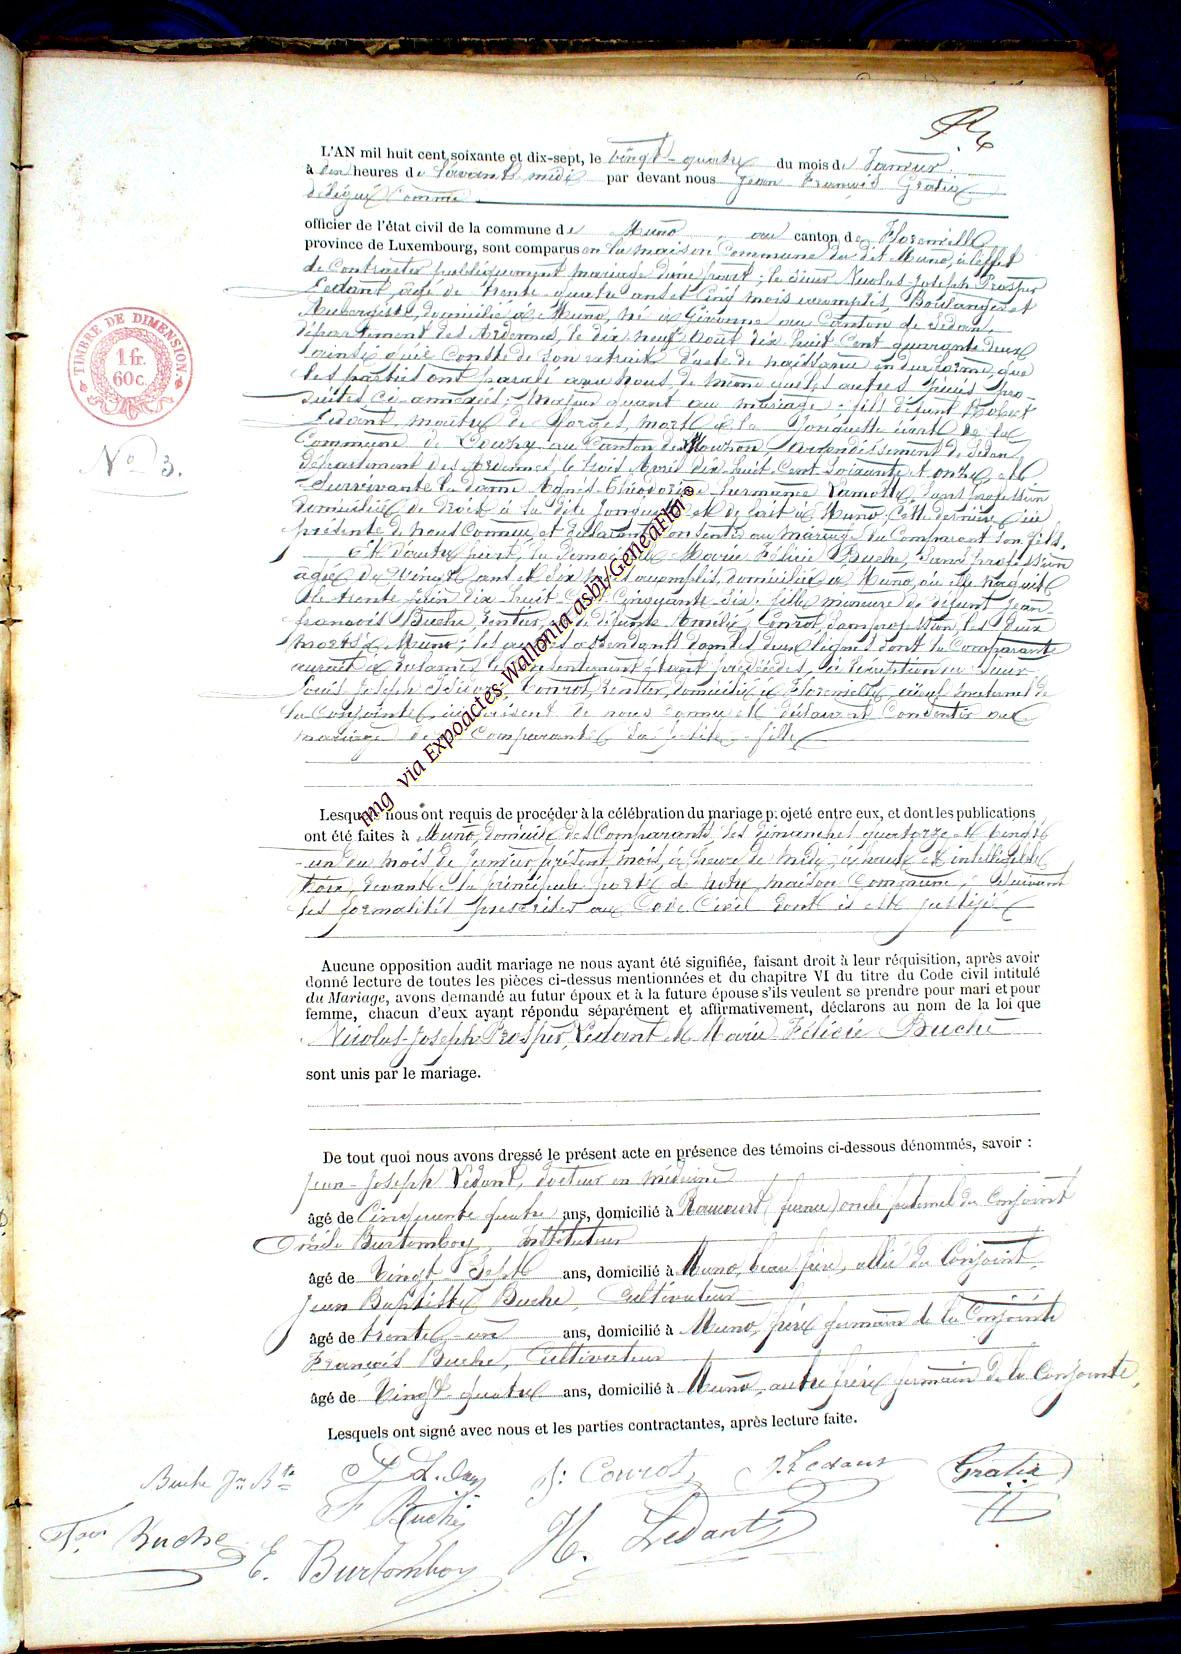 L'AN mil huit cent soixante et dix-sept, le vingt-quatre du mois de Janvier
à dix heures de l'avant midi par devant nous Jean François Gratia
délégué comme
officier de l'état civil de la commune de Muno, au canton de Florenville
province de Luxembourg, sont comparus en la maison Commune du dit Muno, à l'effet
de Contracter publiquement mariage d'une part; le sieur Nicolas-Joseph Prosper
Ledant, âgé de trente quatre ans et Cinq mois accomplis, Boulanger et
Aubergiste, domicilié à Muno, né à Givonne au Canton de Sedan,
département des Ardennes, le dix neuf Août dix huit Cent quarante deux
ainsi qu'il Conste de son extrait d'acte de naissance en due forme, que
les parties ont paraphé avec nous de même que les autres pièces pro-
duites ci-annexées; majeur quant au mariage; fils de défunt
Ledant, maître de forges, mort à la Jonquette écart de la
Commune de Douzy au Canton de Mouzon, arrondissement de Sedan,
département des Ardennes, le trois Avril dix huit Cent Soixante et onze, et
Survivante la dame Agnès Théodorine Lamotte, sans profession
domiciliée de droit à la dite Jonquette et de fait à Muno, Cette dernière ici
présente de nous Connue, et déclarant consentir au mariage du Comparant son fils,
Et d'autre part, la Demoiselle Marie Félicie Buche, sans profession
âgée de Vingt ans et Six mois accomplis, domiciliée à Muno, où elle naquit
le trente Juin dix huit Cent Cinquante Six, fille mineure de défunt Jean
François Buche, Rentier, et de défunte Amélie Conrot, sans profession, les deux
morts à Muno; les autres ascendants dans les deux lignes dont la Comparante
aurait à réclamer le consentement étant prédécédés, à l'exception du Sieur
Louis Joseph Conrot, rentier, domicilié à Florenville, aïeul maternel de
la Conjointe, ici présent de nous connu et déclarant Consentir au
mariage de la Comparante sa petite-fille
Lesquels nous ont requis de procéder à la célébration du mariage projeté entre eux, et dont les publications
ont été faites à Muno, domicile des Comparants, les dimanches quatorze et vingt
-un du mois de Janvier, présent mois, à l'heure de midi, à haute et intelligible
voix, devant la principale porte de notre maison Commune, Suivant
les formalités prescrites au Code Civil dont il est justifié
Aucune opposition audit mariage ne nous ayant été signifiée, faisant droit à leur réquisition, après avoir
donné lecture de toutes les pièces ci-dessus mentionnées et du chapitre VI du titre du Code civil intitulé
du Mariage, avons demandé au futur époux et à la future épouse s'ils veulent se prendre pour mari et pour
femme, chacun d'eux ayant répondu séparément et affirmativement, déclarons au nom de la loi que
Nicolas-Joseph Prosper Ledant et Marie Félicie Buche
sont unis par le mariage.
De tout quoi nous avons dressé le présent acte en présence des témoins ci-dessous dénommés, savoir :
Jean-Joseph Ledant, docteur en médecine
âgé de Cinquante quatre ans, domicilié à Raucourt (france) oncle paternel du Conjoint
Burtomboy, Instituteur
âgé de Vingt Sept ans, domicilié à Muno, beau frère, allié du Conjoint,
Jean Baptiste Buche, Cultivateur
âgé de trente-un ans, domicilié à Muno, frère germain de la Conjointe
François Buche, Cultivateur
âgé de Vingt-quatre ans, domicilié à Muno, autre frère germain de la Conjointe,
Lesquels ont signé avec nous et les parties contractantes, après lecture faite.
Buche Jn Bte
J. Conrot
J. Ledant
Gratia
F Buche
Buche
E. Burtomboy
H. Ledant
TIMBRE DE DIMENSION
1 fr.
60 c.
No 3.
img via Expoactes-Wallonia asbl/GeneaFlor©